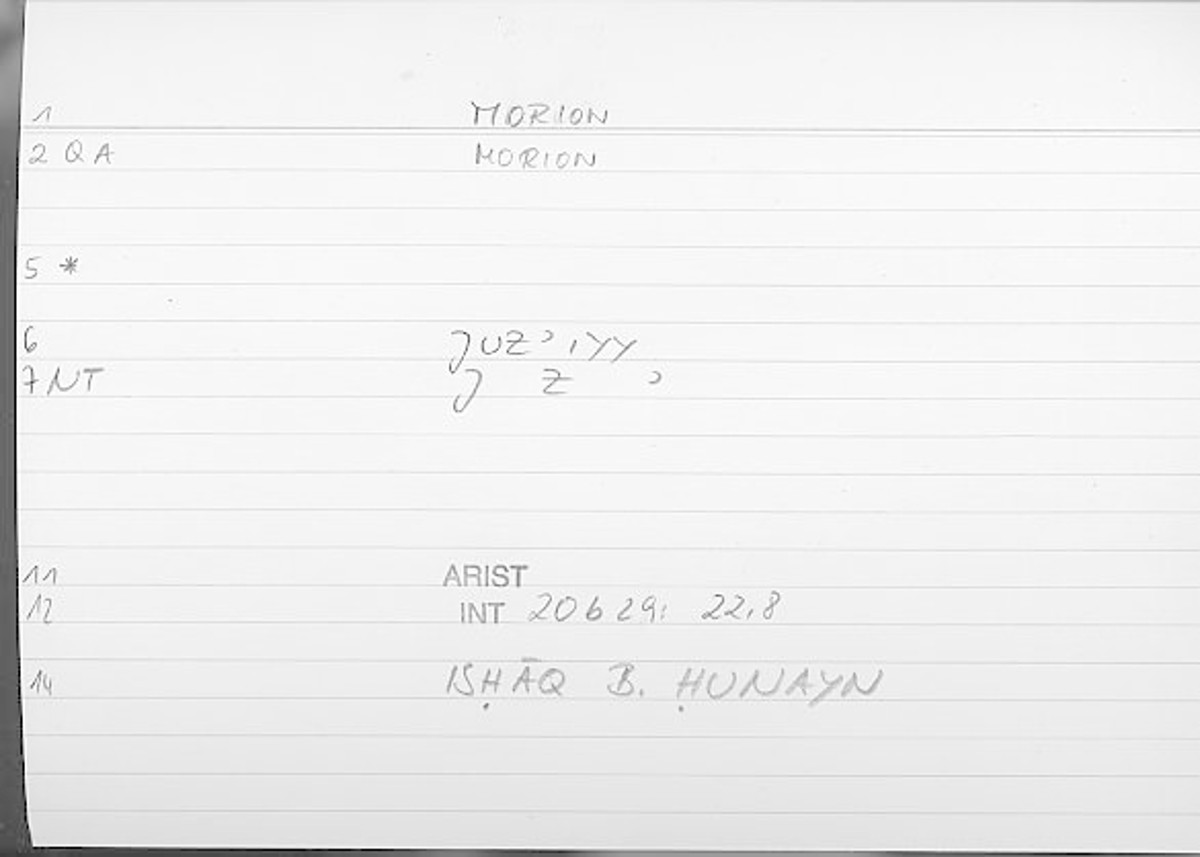 1 MORION
2 QA MORION
5 *
6 JUZʾIYY
7 NT J Z ʾ
11 ARIST
12 INT 20b29: 22,8
14 ISḤĀQ B. ḤUNAYN